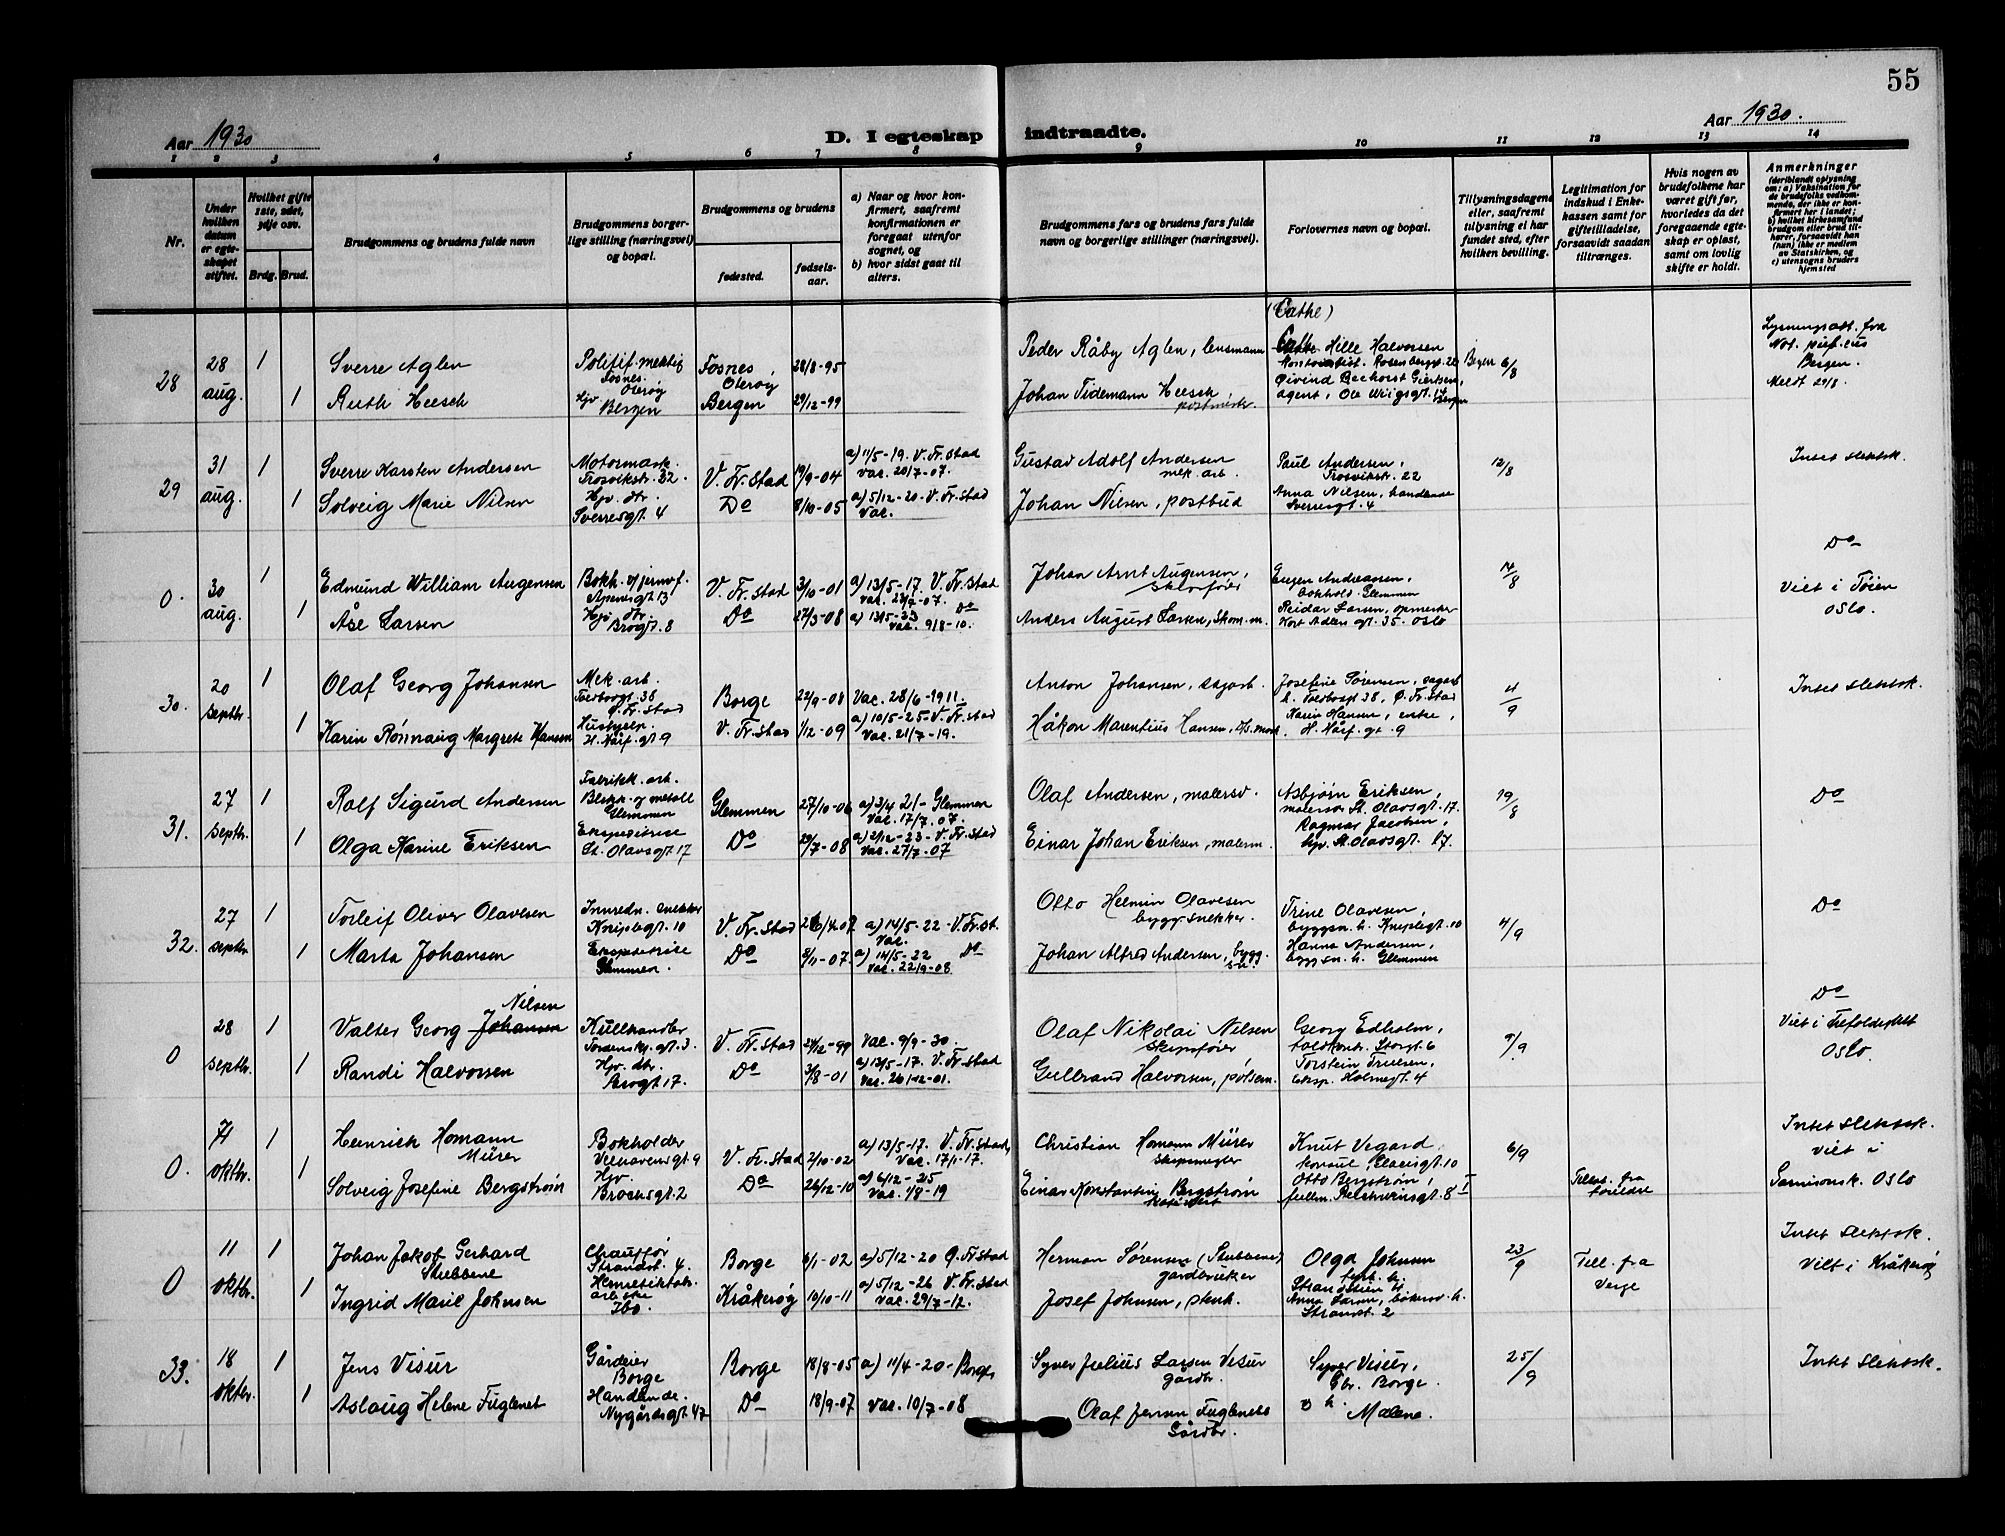 55
Aar 1930
D. I egteskap indtraadte.
Aar 1930.
1 2 3 4 5 6 7 8 9 10 11 12 13 14
Nr.
Under hvilken datum er egteskapet stiftet.
Hvilket gifte
Brdg. Brud.
Brudgommens og brudens fulde navn
Brudgommens borgerlige stilling (næringsvei) og bopæl.
Brudgommens og brudens
fødested.
fødselsaar.
a) Naar og hvor konfirmert, saafremt konfirmationen er foregaat utenfor sognet, og
b) hvor sidst gaat til alters.
Brudgommens fars og brudens fars fulde navn og borgerlige stillinger (næringsvei).
Forlovernes navn og bopæl.
Tillysningsdagene eller, saafremt tillysning ei har fundet sted, efter hvilken bevilling.
Legitimation for indskud i Enkekassen samt for giftetilladelse, forsaavidt saadan tiltrænges.
Hvis nogen av brudefolkene har været gift før, hvorledes da det foregaaende egteskap er opløst, samt om lovlig skifte er holdt.
Anmerkninger
(deriblandt oplysning om: a) Vaksination for de brudefolks vedkommende, der ikke er konfirmert her i landet; b) hvilket kirkesamfund brudgom eller brud tilhører, forsaavidt han (hun) ikke er medlem av Statskirken, og c) utensogns bruders hjemsted
28
28 aug.
1
Sverre Aglen
Fosnes, Oterøy
28/8-95
Peder Råby Aglen, lensmann
(Cathe)
Hille Halvorsen
Bergen 6/8
Bergen.
1
Ruth Heesch
Hjv Bergen
Bergen
29/12-99
Johan Tidemann Heesch
postmestr.
agent, Ole
29
31 aug.
1
Sverre Karsten Andersen
Motormask.
Trosvikstr. 32.
V. Fr.stad
19/9-04
a) 11/5-19. V. Fr.stad
Vac. 20/7-07.
Gustav Adolf Andersen
mek. arb.
Paul Andersen,
Trosvikstr. 22
12/8
Intet slektsk.
1
Solveig Marie Nilsen
Hjv. dtr.
Sverresgt. 4
Do
8/10-05
a) 5/12-20-V. Fr.stad
Vac.
Johan Nilsen, postbud
Anna Nilsen, handlende
Sverresgt. 4
0.
30 aug.
1
Edmund William Augensen
V. Fr.stad
3/10-01
a) 13/5-17. V. Fr.stad
Johan Arnt Augensen,
skipsfører
Eugen Andreassen,
bokhold. Glemmen
14/8
Do
Viet i Tøien
Oslo.
1
Åse Larsen
Hjv dtr.
Brogt. 8
Do
27/3-08
a) 13/5-23 Do
Vac. 9/8-10.
Anders August Larsen, skom.m.
Reidar Larsen, opmerker
Kort Adlers gt. 35. Oslo
30.
20 septbr.
1
Olaf Georg Johansen
Mek. arb.
Borge
22/9-08
Vac. 28/6-1911.
Anton Johansen, sagarb.
Josefine Sørensen, sagarb
4/9
Intet slektsk.
1
Karin Rønnaug Margrete Hansen
Hushjelp.
V. Fr.stad
1/12-09
a) 10/5-25-V. Fr.stad
Vac. 21/7-19.
Håkon Marentius Hansen
Karin Hansen, enke,
31.
27 septbr.
1
Rolf Sigurd Andersen
Fabrikk. arb.
Blikk. og metall
Glemmen
Glemmen
27/10-06
a) 3/4 21- Glemmen
Vac. 17/7.07.
Olaf Andersen, malersv.
Asbjørn Eriksen,
malersv St. Olavsgt. 17.
19/8
Do
1
Olga Karine Eriksen
Ekspeditrise
St. Olavsgt 17
Do
29/7-08
a) 2/12-23-V. Fr.stad
Vac. 27/7-07
Einar Johan Eriksen, malerm.
Ragmar Jacobsen,
hjv. St. Olavsgt. 17.
32.
27 septbr.
1
Torleif Oliver Olavesen
Innredn. snekker
Kniplegt. 10
V. Fr.stad
26/4.07
a) 14/5-22-V. Fr.st.
Vac.
Otto Helmin Olavesen
byggsnekker.
Trine Olavesen,
byggsn. h. Kniplegt. 10
4/9
Do
1
Marta Johansen
Ekspeditrise
Glemmen.
Do
8/11-07.
a) 14/5-22 Do
Vac. 22/9-08.
Johan Alfred Andersen, bygg.
sn.
Hanna Andersen,
byggsn. h. Glemmen
0
28 septbr.
1
Nilsen
Valter Georg Johansen
Kullhandler
Torsnskj. gt. 3.
V. Fr.stad
24/12-99
Vac. 9/9-30
Olaf Nikolai Nilsen
skipsfører
Georg Edholm,
toldkontr. Storgt. 6
9/9
Do
Viet i Trefoldighet
Oslo.
1
Randi Halvorsen
Hjv. dtr.
Brogt 17.
Do
3/8-01
a) 13/5-17. V. Fr.stad
Vac. 26/12-01.
Gulbrand Halvorsen, pølsem.
Torstein Truesen,
eksp. Holmegt. 4
0.
4 oktbr.
1
Heinrich Homann
Mürer
Bokholder
Velhavensgt. 9
V. Fr.stad
2/10-02
a) 13/5-17. V. Fr.stad
Vac. 17/1-17.
Christian Homann Mürer
skipsmegler
Knut Vegard
konsul, Glacisgt. 10
6/9
Intet slektsk.
viet i
Garnisonsk. Oslo
1
Solveig Josefine Bergstrøm
Hjv.
Brochsgt. 2
Do
26/12-10
a) 6/12-25
Vac. 1/8-19
Einar Konstantin Bergstrøm
Otto Bergstrøm,
Tillat. fra
foreldre
0
11 oktbr.
1
Johan Jakob Gerhard
Stubbene
Chauffør
Strandst. 4.
Borge
6/1-02
a) 5/12-20 Ø. Fr.stad
Herman Sørensen (Stubbene)
gårdbruker
Olga Johnsen
23/9
Till. fra
Verge
Intet slektsk.
Viet i Kråkerøy
1
Ingrid Marie Johnsen
Hermetikkfabr.
arb.ske
Ibo.
Kråkerøy
19/10-11
a) 5/12-26 V. Fr.stad
Vac. 29/7-12.
Josef Johnsen, stenh.
Strandst. 2
33.
18 oktbr.
1
Jens Visur
Gårdeier
Borge
Borge
18/8-05
a) 11/4-20-Borge
Syver Julius Larsen Visur
gårdbr.
Syver Visur,
Gbr. Borge.
25/9
Intet slektsk.
1
Aslaug Helene Fuglenet
Handlende.
Nygårdsgt. 47
Do
18/9-07
Vac. 10/7-08
Olaf Jensen Fuglenet
Gårdbr.
Malene.